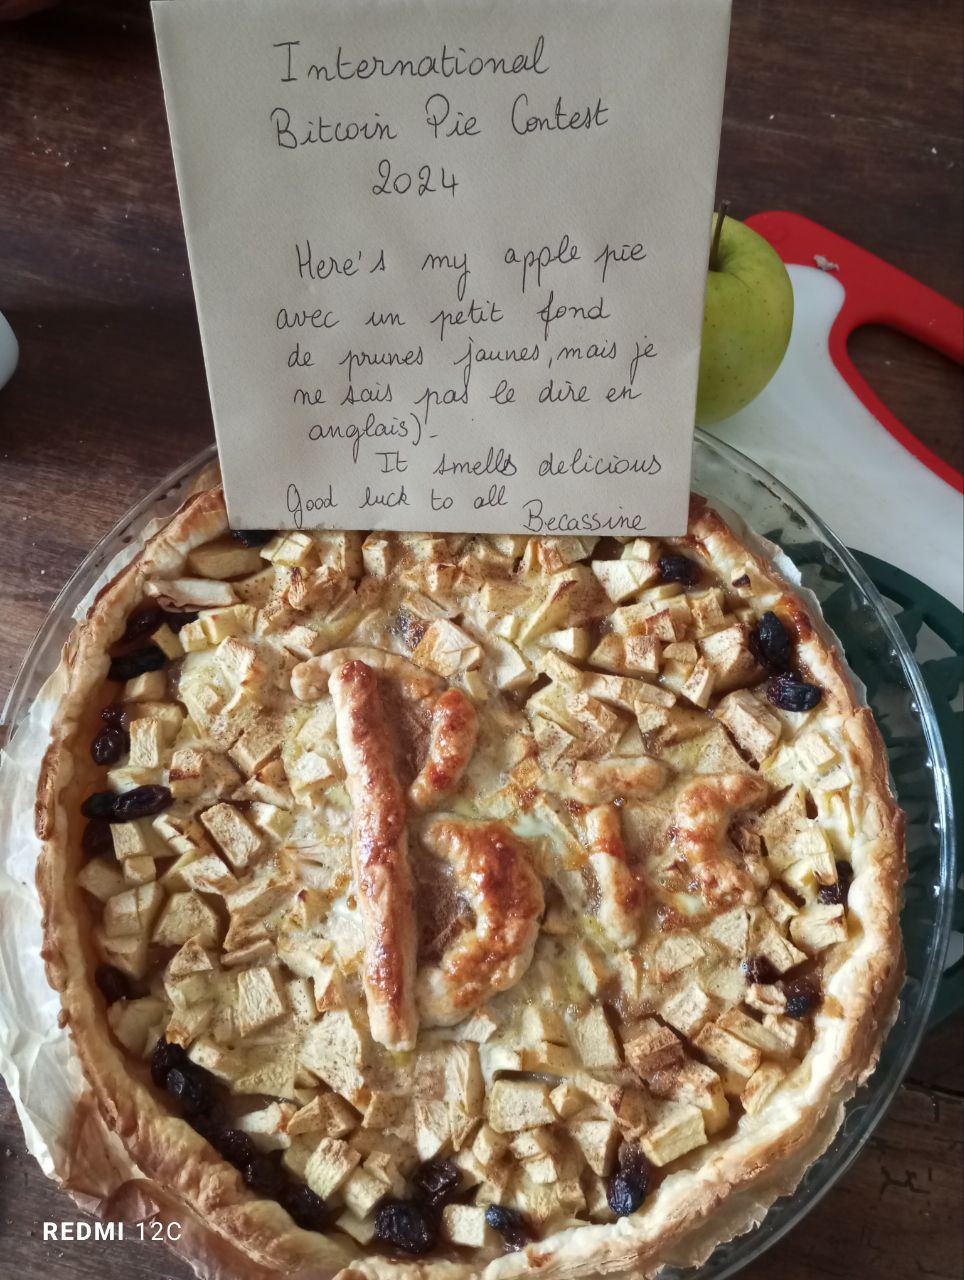 International
Bitcoin Pie Contest
2024
Here's my apple pie
avec un petit fond
de prunes jaunes, mais je
ne sais pas le dire en
anglais)-
It smells delicious
Good luck to all
Becassine
BTC
REDMI 12C